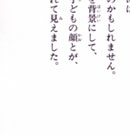 のかもしれません。
を背景にして、
子どもの顔とが、
れて見えました。